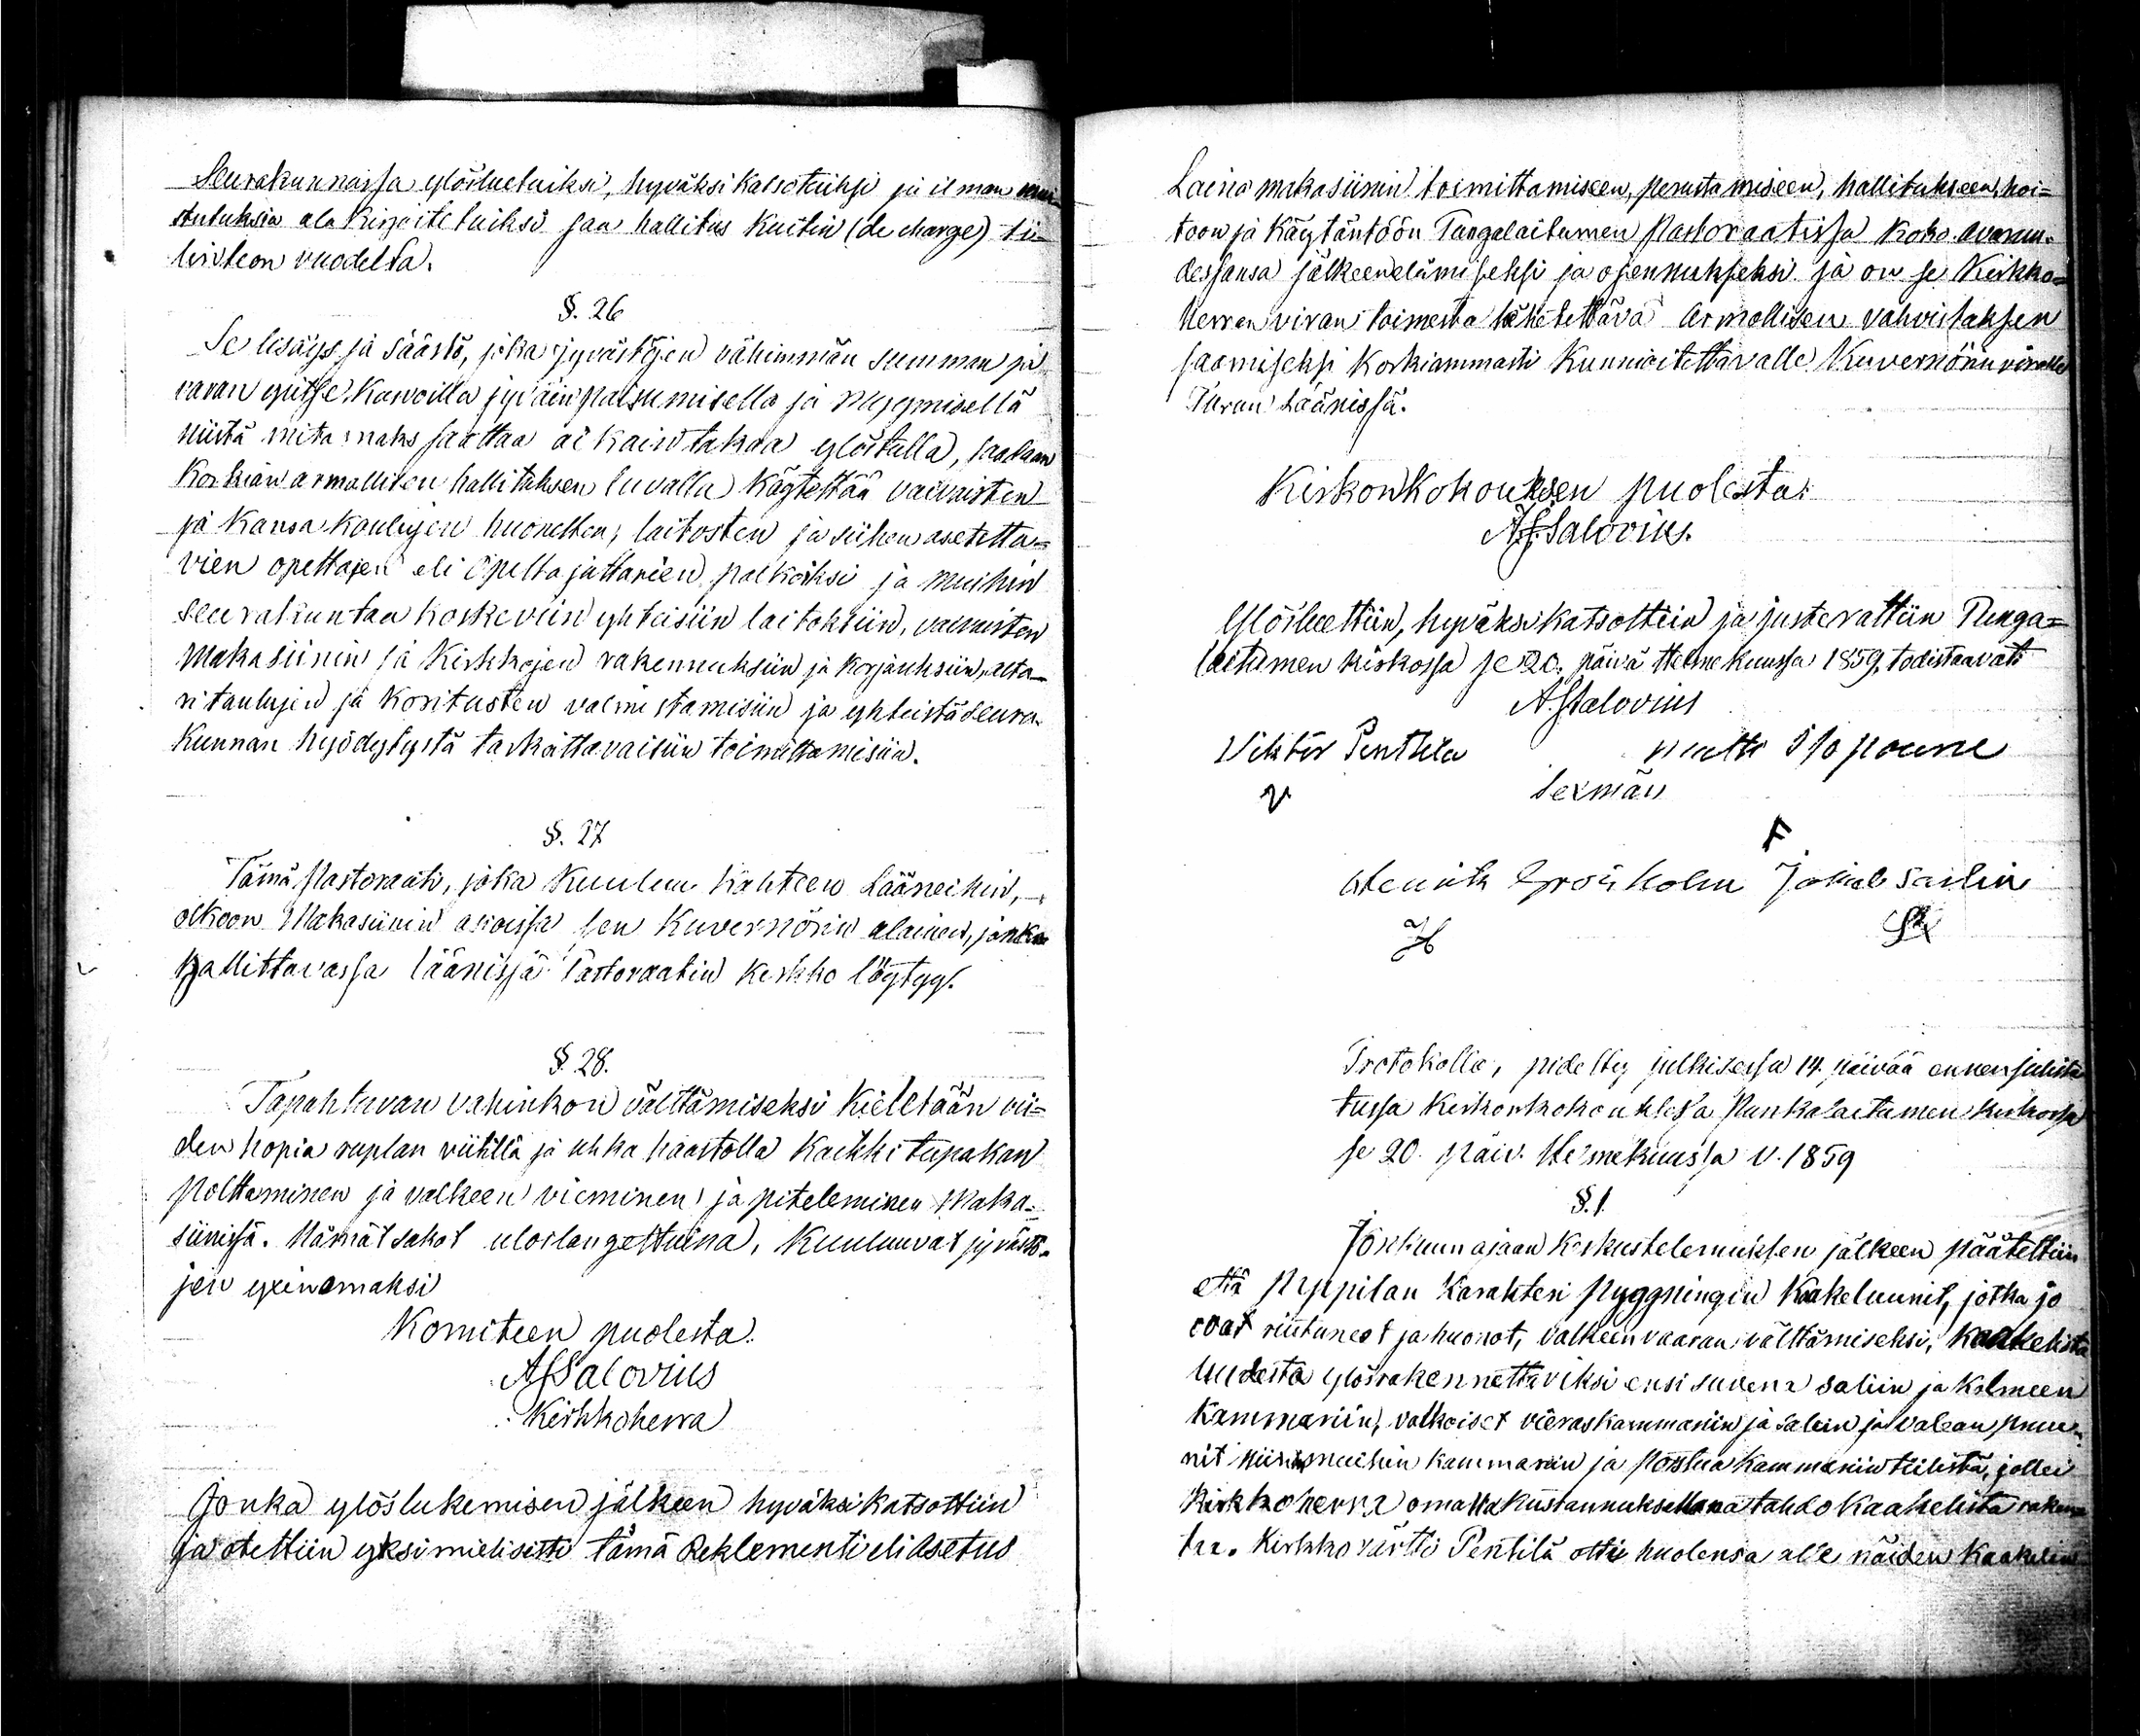 Seurakunnassa ylösluetuiksi, hyväksikatsotuiksi ja ilman mui-
stutuksia alakirjoitetuiksi saa hallitus Kuitin (de charge) ti-
linteon vuodelta.
§. 26
Se lisäys ja säästö, joka jyvästöjen vähimmän summan ja
varan ylitse, Kasvoilla jyväin paisumisella ja myymisellä
niistä mita maks saattaa aikain takaa ylöstulla, saadaan
Korkian armollisen hallituksen luvalla Käytettää vaivaisten
ja Kansa Koulujen huonetten, laitosten ja siihen asetetta=
vien opettajen eli Opettajattarien palkoiksi ja muihin
seurakuntaa koskeviin yhteisiin laitoksiin, vaivaisten
Makasiinin ja Kirkkojen rakennuksiin ja korjauksiin, alta-
ritaulujen ja Koritusten valmistamisiin ja yhteistä seura-
Kunnan hyödytystä tarkoittavaisiin toimittamisiin.
§. 27
Tämä Pastoraati, joka Kuuluu Kahteen Lääneihin,
olkoon Makasiinin asioissa sen Kuvernörin alainen, jonka
hallittavassa läänissä Pastoraatin Kirkko löytyy.
§. 28.
Tapahtuvan vahinkon välttämiseksi Kielletään vii=
den hopia ruplan viitillä ja uhka haastolla Kaikki tupakan
polttaminen ja valkeen vieminen ja piteleminen Maka=
siinissä. Nämät sakot uloslangettuina, Kuuluuvat jyvästö-
jen yxinomaksi
Komiteen puolesta:
AfSalovius
Kirkkoherra
Jonka ylöslukemisen jälkeen hyväksikatsottiin
ja otettiin yksimielisesti tämä Reklementi eli Asetus
Laina makasiinin toimittamiseen, perustamiseen, hallitukseen, hoi=
toon ja Käytäntöön Pungalaitumen Pastoraatissa Koko avaruu-
dessansa jälkeenelämiseksi ja ojennukseksi ja on se Kirkko=
Herran viran toimesta lähetettävä Armollisen vahvistuksen
saamiseksi Korkiammasti Kunnioitettavalle Kuvernörin viralle
Turun Läänissä.
Kirkonkokouksen puolesta:
AfSalovius.
Ylösluettiin, hyväksikatsottiin ja justerattiin Punga=
laitumen Kirkossa se 20. päivä Helmekuussa 1859, todistaavat:
AfSalovius
Viktor Penttilä matti
Sexmän
F
Henrik Grönholm Jakob Sarlin
H
Protokolla, pidetty julkisessa 14. päivää ennen julista
tussa Kirkonkokouksessa Punkalaitumen Kirkossa
se 20. päiv. Helmekuussa v. 1859
§. 1.
Jonkuun ajaan Keskustelemuksen jälkeen päätettiin
että Pappilan Karakteri Pyggningin Kaakeluunit, jotka jo
ovat riutuneet ja huonot, valkeen vaaran välttämiseksi, Kaakelista
Uudesta ylösrakennettaviksi ensi suvena saliin ja Kolmeen
Kammariin, valkoiset vieraskammariin ja saliin ja valean
nit niin muihin Kammariin ja Porstua Kammariin tiilistä, jollei
Kirkkoherra omalla Kustannuksellansa tahdo Kaakelista raken
taa. Kirkkovärtti Pentilä otti huolensa alle näiden Kaakelin